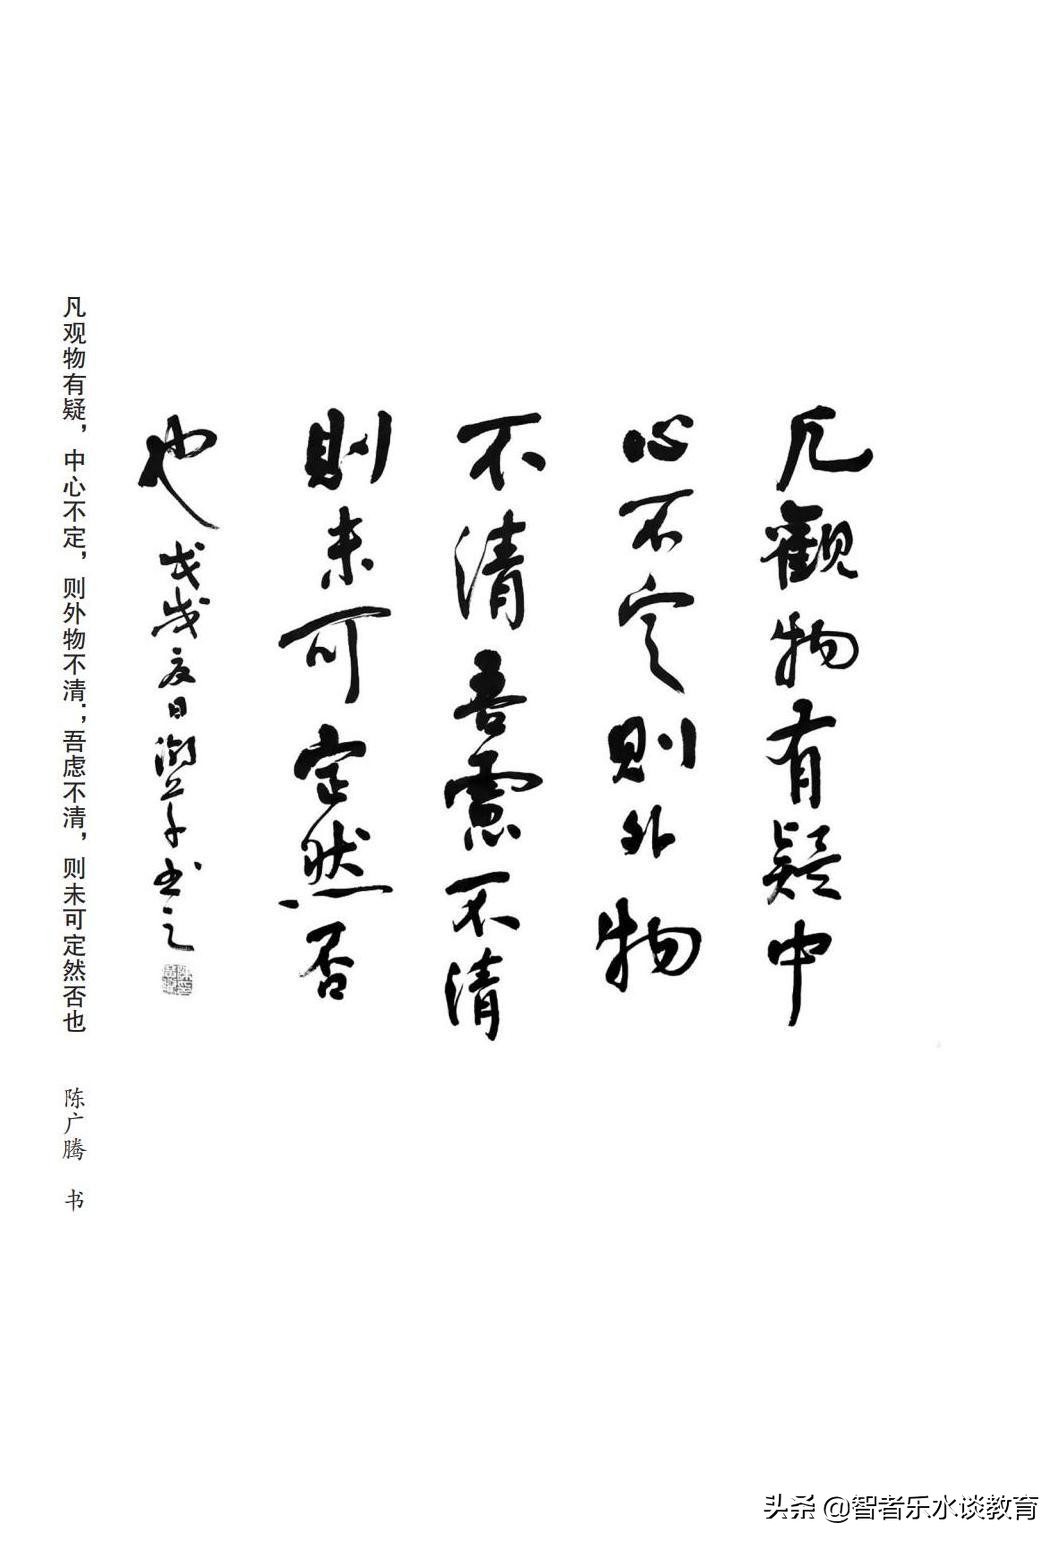 凡觀物有疑中
心不定則外物
不清吾慮不清
則未可定然否
也 戊戌夏日
书之
凡观物有疑，中心不定，则外物不清；吾虑不清，则未可定然否也 陈广腾 书
头条 @智者乐水谈教育